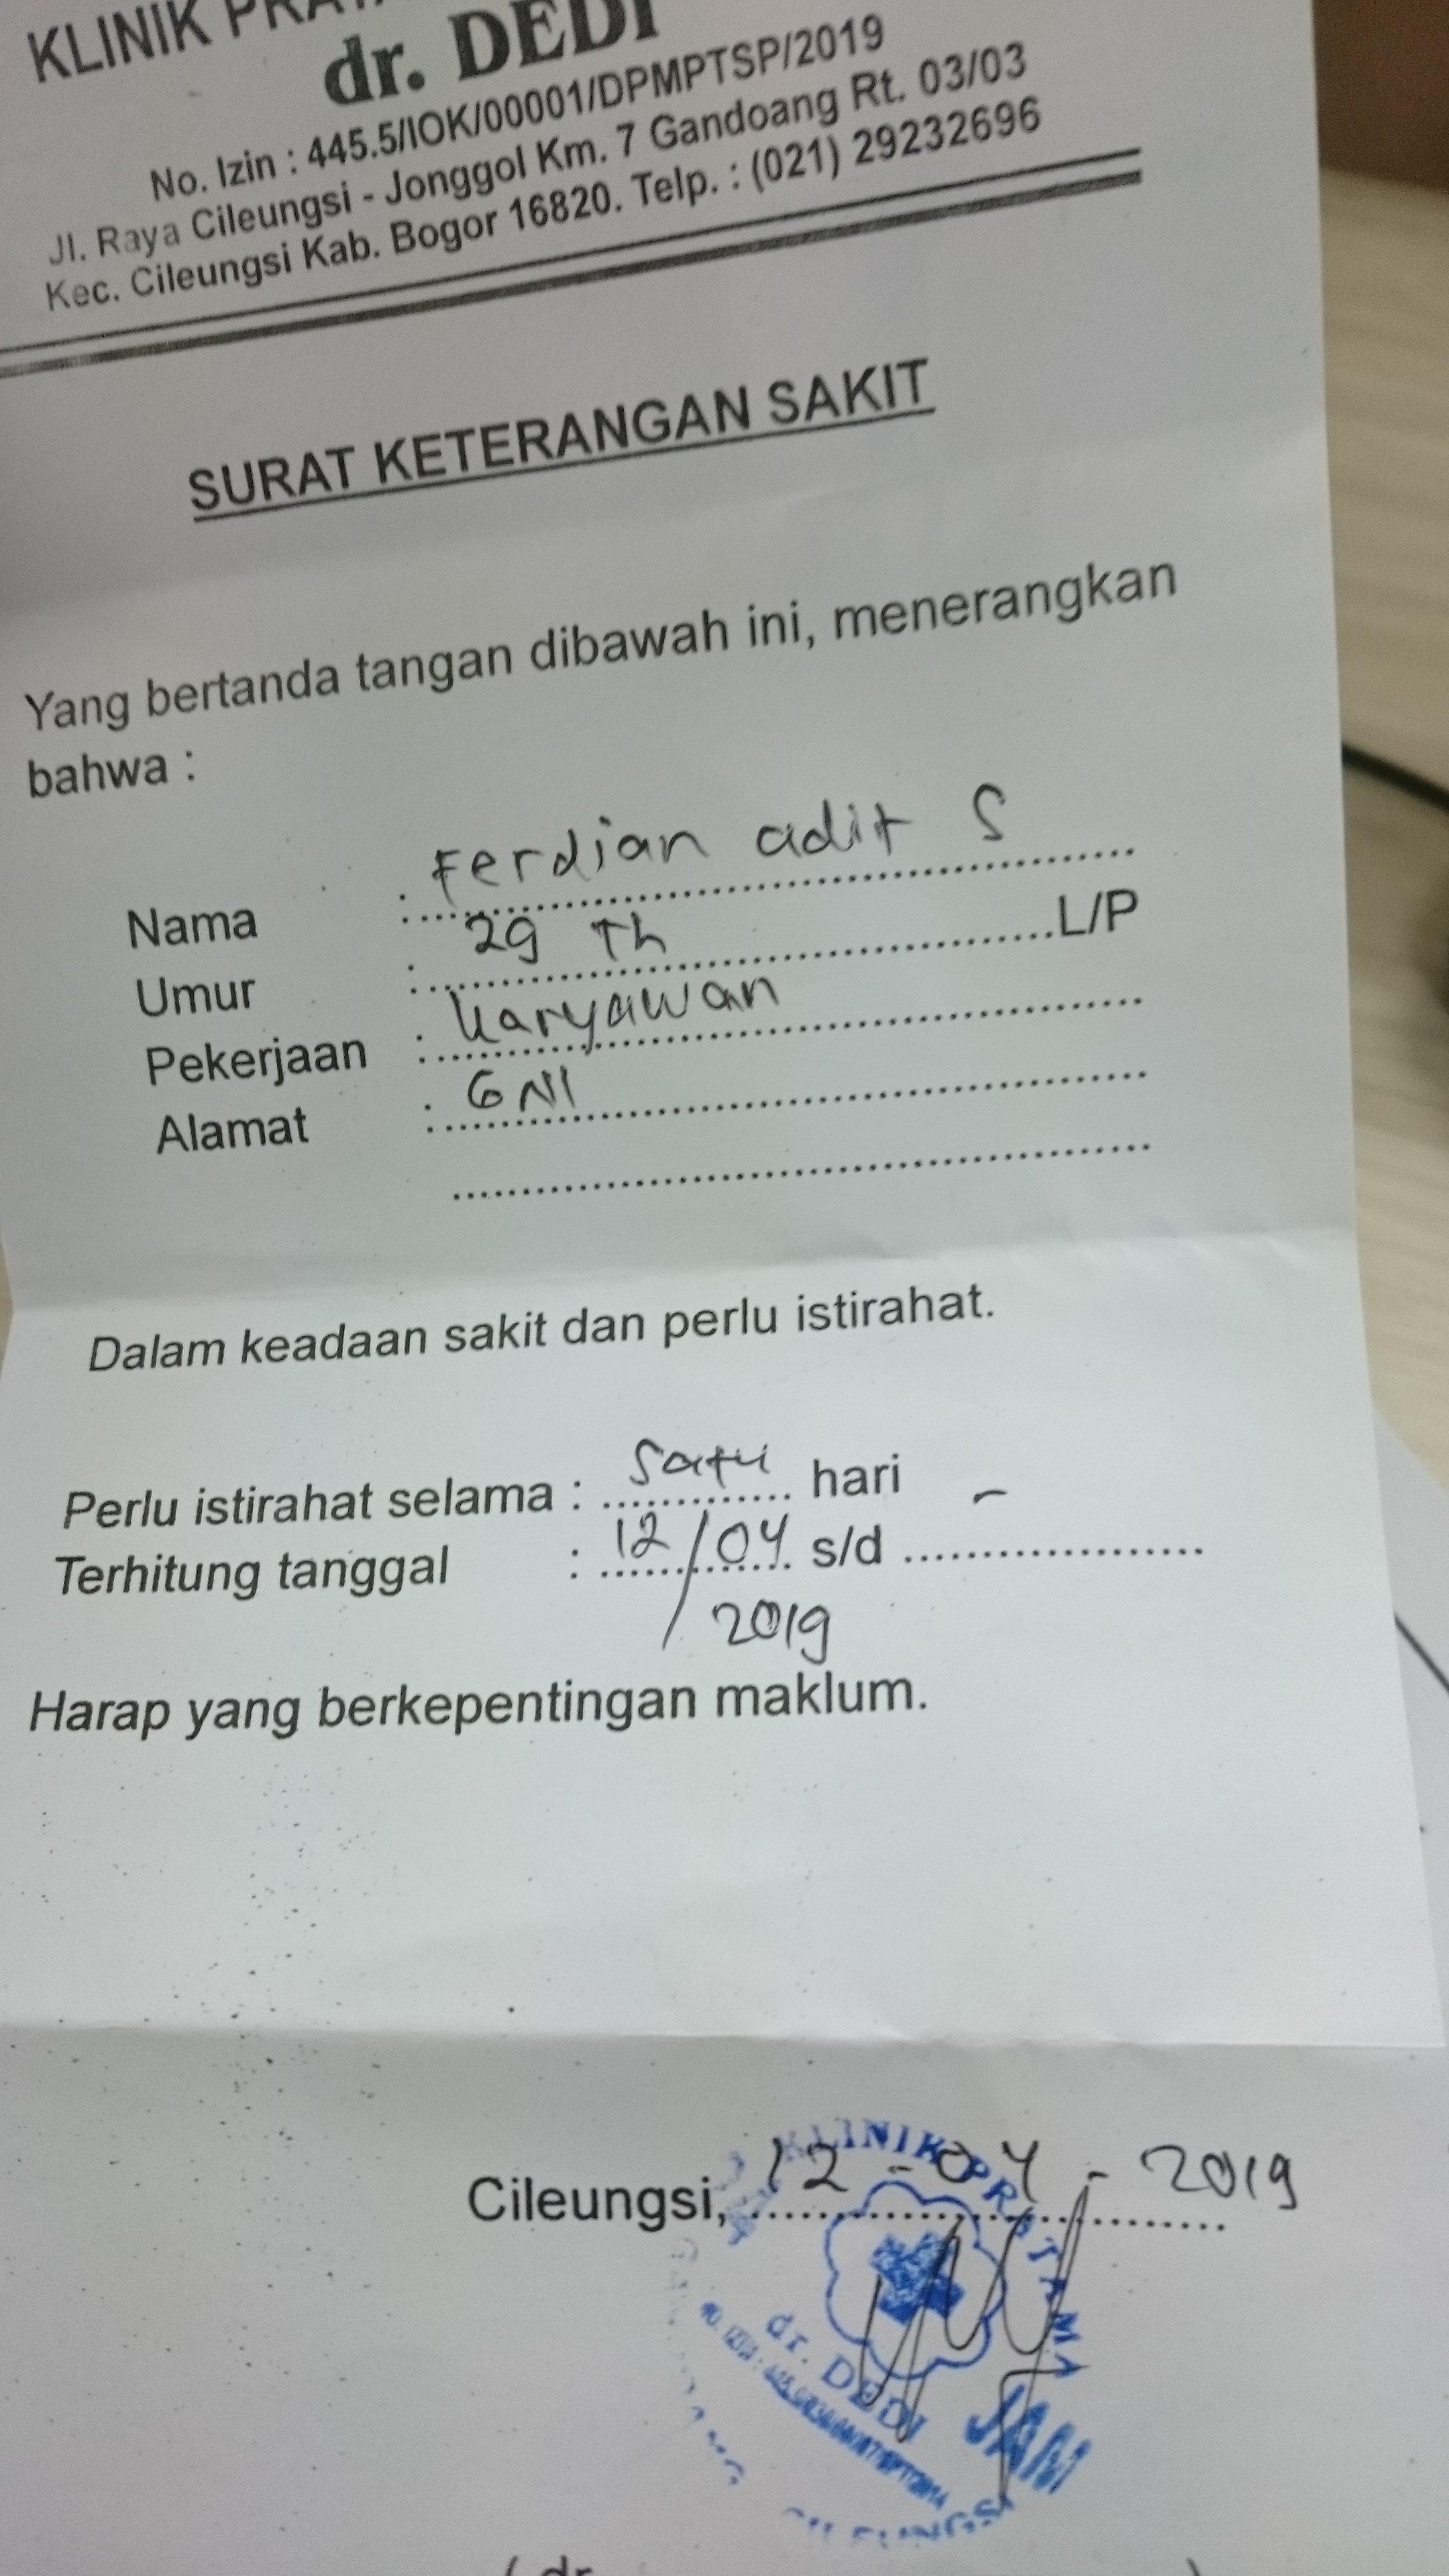 KLINIK PRATAMA
dr. DEDI
No. Izin : 445.5/IOK/00001/DPMPTSP/2019
Jl. Raya Cileungsi - Jonggol Km. 7 Gandoang Rt. 03/03
Kec. Cileungsi Kab. Bogor 16820. Telp. : (021) 29232696
SURAT KETERANGAN SAKIT
Yang bertanda tangan dibawah ini, menerangkan
bahwa :
Nama : Ferdian adit S
Umur : 29 Th L/P
Pekerjaan : Karyawan
Alamat : GNI
Dalam keadaan sakit dan perlu istirahat.
Perlu istirahat selama : satu hari
Terhitung tanggal : 12/04 s/d -
/ 2019
Harap yang berkepentingan maklum.
Cileungsi, 12 - 04 - 2019
KLINIK PRATAMA
dr. DEDI
JAM
CILEUNGSI
( dr. )